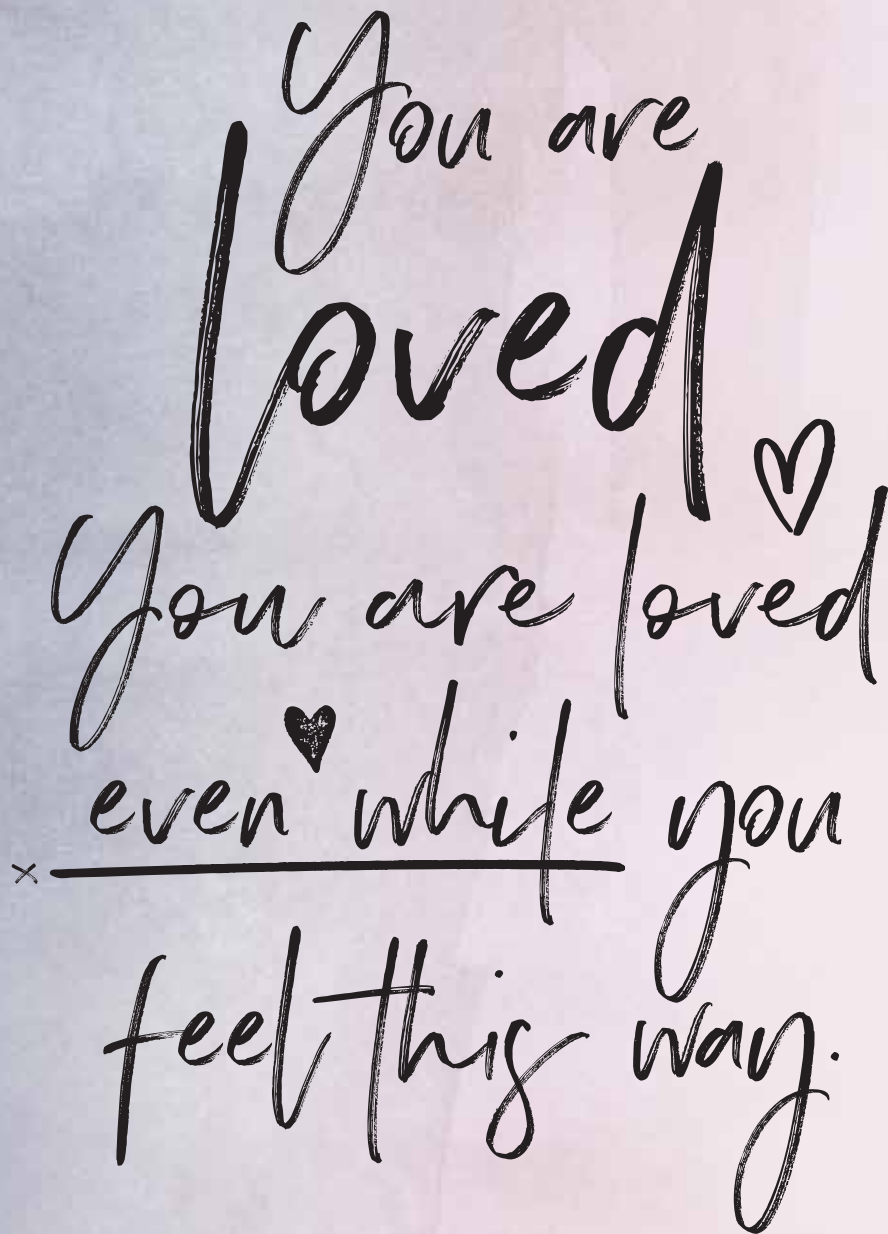 You are
loved
You are loved
even while you
feel this way.